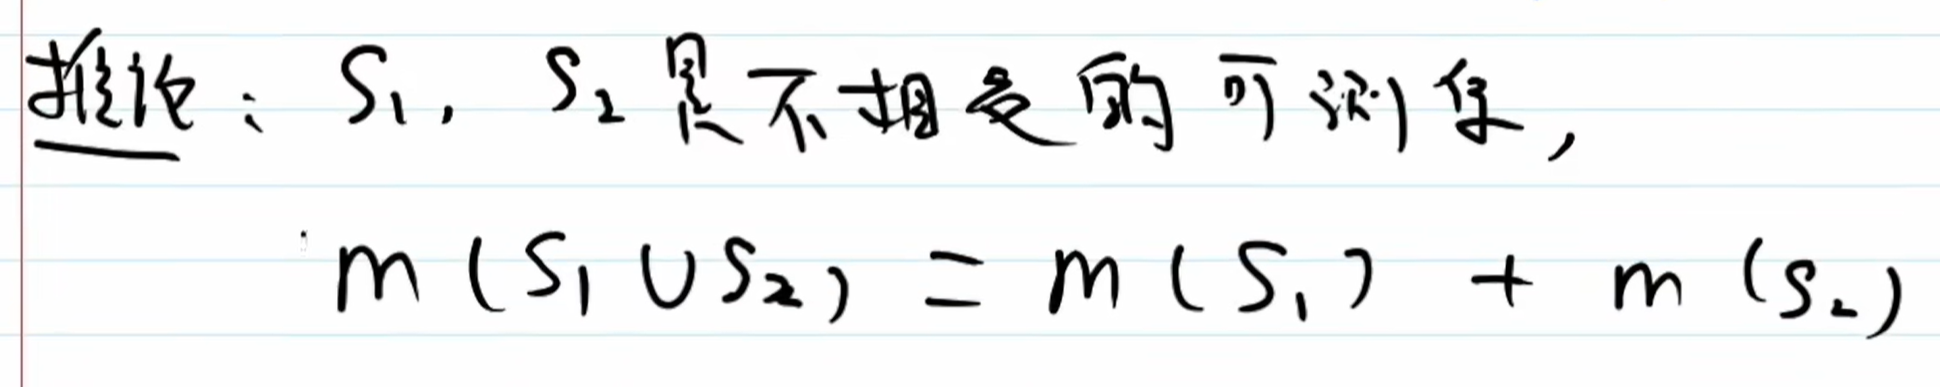 推论：S₁，S₂是不相交的可测集，
m(S₁∪S₂) = m(S₁) + m(S₂)